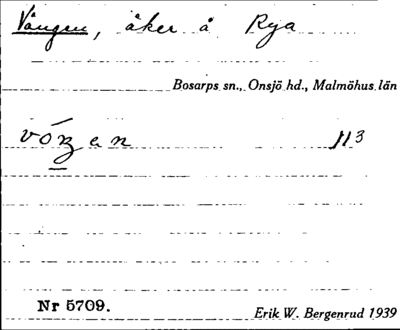 Vången, åker å Rya
Bosarps sn., Onsjö hd., Malmöhus län
113
Nr 5709.
Erik W. Bergenrud 1939